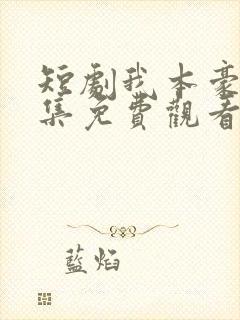 短劇我本豪
集免費觀看
藍焰